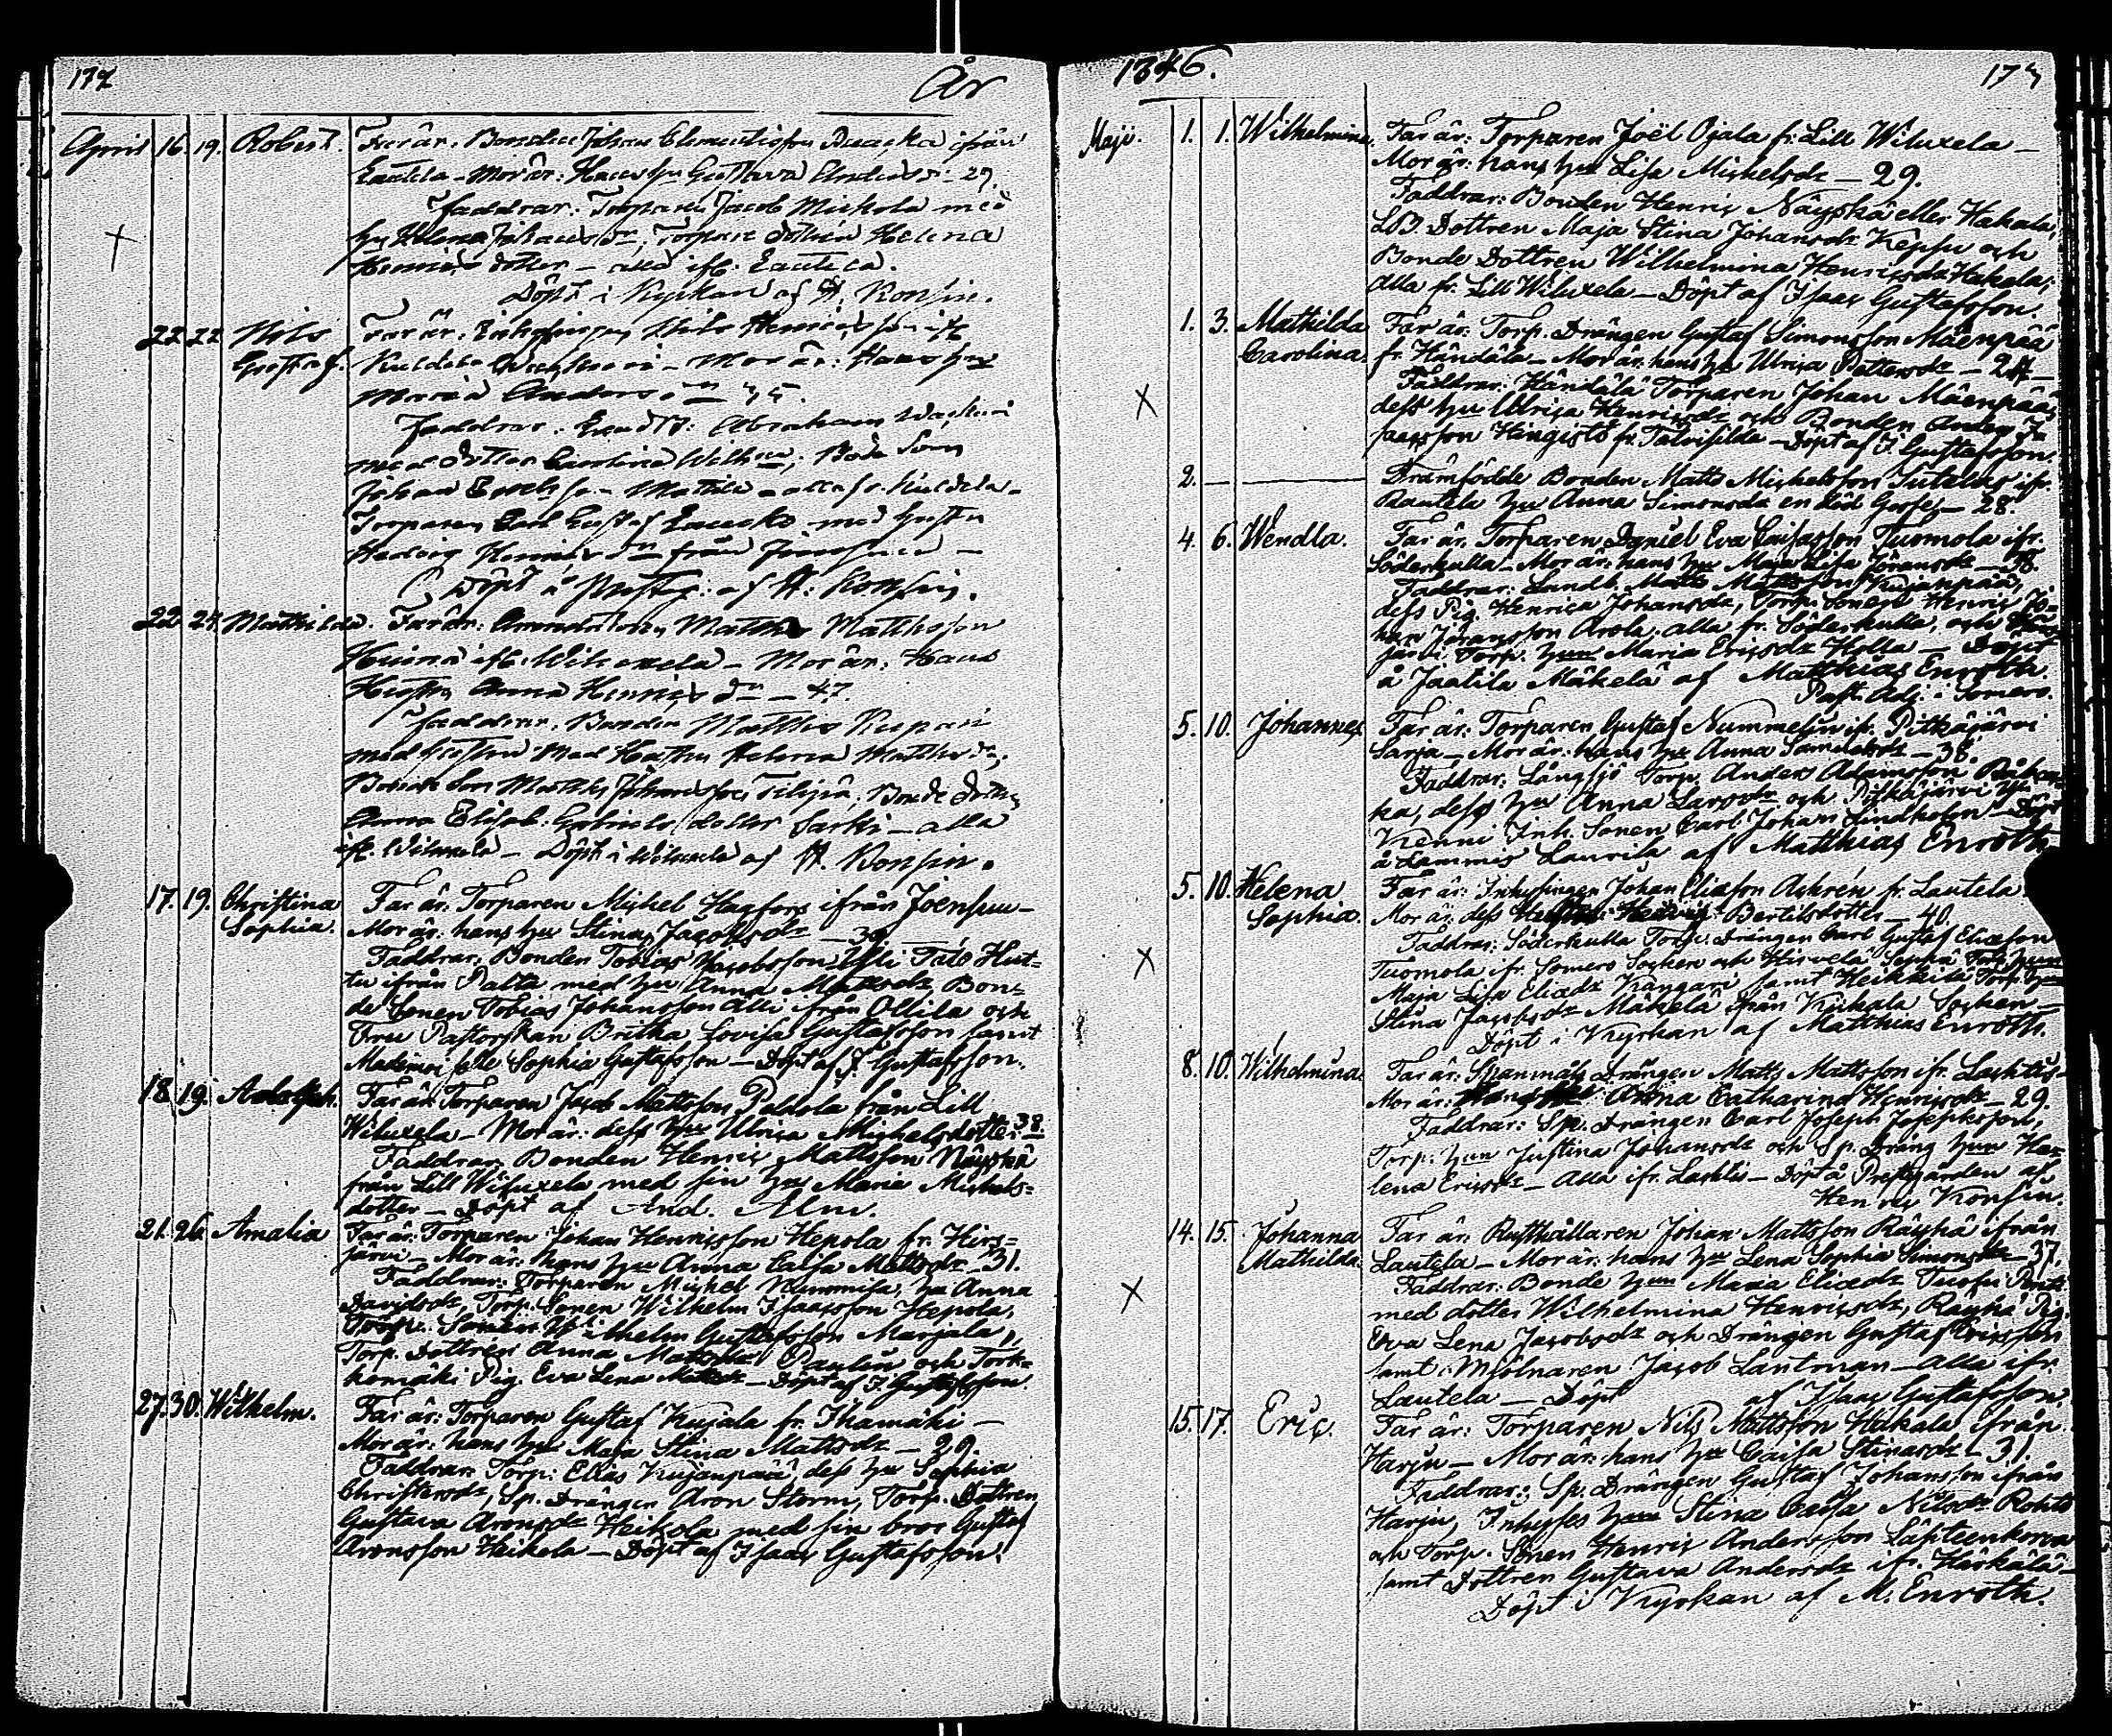 172 År
April 16. 19. Robert. Far är: Bonden Johan ifrån
Lautela - Mor är: Hans hu Gustava - 29.
Faddrar: Torparen Jacob med
hu Helena Johansdr, Torpare dottren Helena
Henrics dotter - alla ifr. Lautela.
Döpt i Kyrkan af H. Konsin.
22 22 Nils Far är: Inhysingen Nils Henricsson ifr
Gustaf. Kuldela - Mor är: Hans hu
Maria Anders
Faddrar: Abraham
med dotter Carolina Bonde Son
Johan alla fr. Kuldela -
Torparen Carl Gustaf med hustru
Hedvig Henricsdr från
Döpt å Prestg: af H. Konsin.
22 24 Mathilda. Far är: Matths Matthsson
ifr. Wiluxela - Mor är: Hans
Hustru Anna Henricsdr - 47.
Faddrar: Bonden Matths
med Hustru Helena Matthsdr,
Bonde Son Matths Johansson Bonde dotter
Anna Elisab: Gabriels dotter Sarki - alla
ifr. Wiluxela - Döpt i Wiluxela af H. Konsin.
17. 19. Christina Far är: Torparen Michel Hagfors ifrån Joensuu -
Sophia. Mor är: hans hu Stina Jacobsdr - 39.
Faddrar: Bonden Tobias Jacobsson Ylli Talo Hut=
tu ifrån Palta med hu Anna Mattsdr Bon=
de Sonen Tobias Johansson Alli ifrån Ollila och
Fru Pastorskan Britha Lovisa Gustafsson samt
Mademoiselle Sophia Gustafsson - Döpt af J. Gustafsson.
18. 19. Adolph. Far är Torparen Jacob Mattsson Paldola från Lill
Wiluxela - Mor är: dess hu Ulrica Michelsdotter 38
Faddrar: Bonden Henric Mattsson Näyskä
från Lill Wiluxela med sin hu Maria Michels=
dotter - Döpt af And. Alm.
21. 26. Amalia Far är: Torparen Johan Henricsson Hepola fr. Hirs=
järvi - Mor är: hans hu Anna Caisa Mattsdr - 31.
Faddrar: Torparen Michel Nummisa, hu Anna
Davidsdr, Torp. Sonen Wilhelm Isaacsson Hepola,
Torp. Sonen Wilhelm Gustafsson Marjala,
Torp. Dottren Anna Mattsdr Paulin och Tork=
komäki Pig. Eva Lena Mattsdr - Döpt af J. Gustafsson.
27. 30. Wilhelm. Far är: Torparen Gustaf Kujala fr. Ihamäki -
Mor är: hans hu Maja Stina Mattsdr - 29.
Faddrar: Torp: Elias Kujanpää, dess hu Sophia
Christersdr, Sp. Drängen Aron Storm, Torp. Dottren
Gustava Aronsdr Heikola med sin bror Gustaf
Aronsson Heikola - Döpt af Isaac Gustafsson.
1846. 173
Maji. 1. 1. Wilhelmina. Far är: Torparen Joël Ojala fr. Lill Wiluxela -
Mor är: hans hu Lisa Michelsdr - 29.
Faddrar: Bonden Henric Näyskä eller Hakala,
Dottren Maja Stina Johansdr Keppu och
Bonde Dottren Wilhelmina Henricsdr Hakala;
Alla fr. Lill Wiluxela - Döpt af Isaac Gustafsson.
1. 3. Mathilda Far är: Torp. Drängen Gustaf Simonsson Mäenpää
Carolina. fr. Händälä - Mor är: hans hu Ulrica Pettersdr - 24 -
Faddrar: Händälä Torparen Johan Mäenpää
dess hu Ulrica Henricsdr och Bonden
Isacsson Hingistö fr. Talvisilda - Döpt af J. Gustafsson.
2. Framfödde Bonden Matts Michelsson Tutelas ifr.
Rautela hu Anna Simonsdr en död Gosse - 28.
4. 6. Wendla. Far är: Torparen Daniel Eva Caisasson Tuomola ifr.
Söderkulla - Mor är: hans hu Maja Lisa Göransdr -
Faddrar: Landb. Matts Kujanpää,
dess Pig. Henrica Johansdr, Torp. Sonen Henric Jo=
han Göransson Arola, alla fr. Söderkulla, och
järvi Torp. hun Maria Ericsdr Holla - Döpt
å Jaatila Mäkelä af Matthias Enroth.
Past. Adj. i Somero.
5. 10. Johannes Far är: Torparen Gustaf Nummelin ifr. Pitkäjärvi
Sarja - Mor är: hans hu Anna Samuelsdr - 38.
Faddrar: Långsjö Torp. Anders Adamsson
ka, dess hu Anna Larsdr och Pitkäjärvi
Kenni Inh. Sonen Carl Johan Lindholm - Döpt
å Lammis Laurila af Matthias Enroth
5. 10. Helena Far är: Inhysingen Johan Eliasson Achrén fr. Lautela
Sophia. Mor är dess Hustru: Hedvig Bertilsdotter - 40.
Faddrar: Söderkulla Torp. Drängen Carl Gustaf Eliasson
Tuomola ifr. Somero Socken och Hirvelä Sophia Torp. hun
Maja Lisa Eliædr Kangari samt Heikkilä Torp.
Stina Jacobsdr Mäkelä ifrån Kiikala Socken -
Döpt i Kyrkan af Matthias Enroth.
8. 10. Wilhelmina. Far är: Spanmåls Drängen Matts Mattsson ifr. Lachtis -
Mor är: Anna Catharina Henricsdr - 29.
Faddrar: Sp. Drängen Carl Joseph Josephsson,
Torp. hun Justina Johansdr och Sp. Dräng hun He=
lena Ericsdr - Alla ifr. Lachtis - Döpt å Prestgården af
Henric Konsin.
14. 15. Johanna Far är: Rusthållaren Johan Mattsson Räyhä ifrån
Mathilda. Lautela - Mor är: hans hu Lena Sophia Simonsdr - 37.
Faddrar: Bonde hun Maria Eliædr
med dotter Wilhelmina Henricsdr, Räyhä Pig.
Eva Lena Jacobsdr och Drängen Gustaf Ericsson
samt Mjölnaren Jacob Lantman - alla ifr.
Lautela - Döpt af Isaac Gustafsson.
15. 17. Eric. Far är: Torparen Nils Mattsson Hakala ifrån
Harju - Mor är: hans hu Caisa Stinasdr - 31.
Faddrar: Sp. Drängen Gustaf Johansson ifrån
Harju, Inhyses hun Stina Caisa Nilsdr Rohto
och Torp. Sonen Henric Andersson Läpteenkorva
samt Dottren Gustava Andersdr ifr. Härkälä -
Döpt i Kyrkan af M. Enroth.